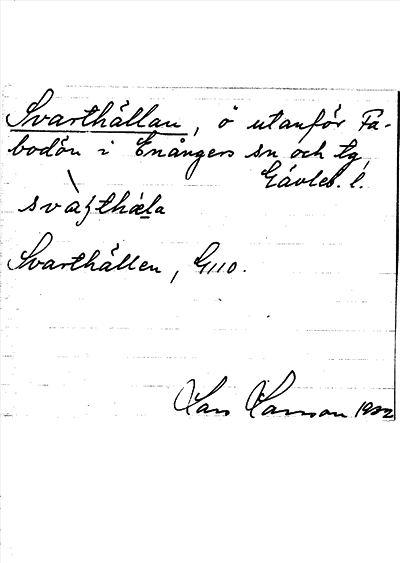 Svarthällan, ö utanför Få-
bodön i Enångers sn och tg,
Gävleb. l.
svàʈhä́la
Svarthällen, G110.
Lars Larsson 1932